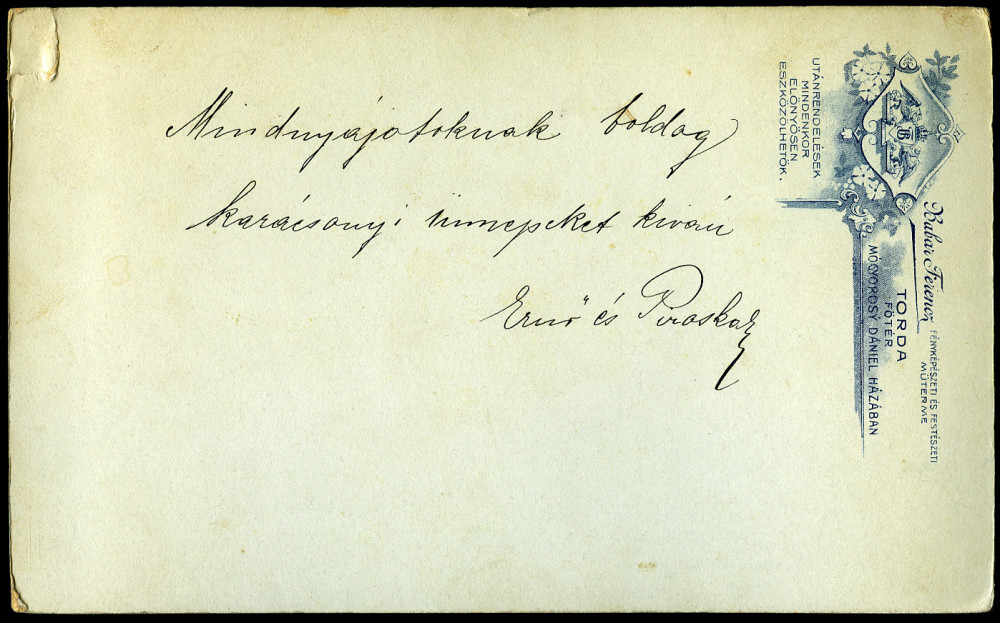 Mindnyájotoknak boldog
karácsonyi ünnepeket kiván
Ernő és Piroska
UTÁNRENDELÉSEK
MINDENKOR
ELŐNYÖSEN
ESZKÖZÖLHETŐK.
Babar Ferencz FÉNYKÉPÉSZETI ÉS FESTÉSZETI
MŰTERME
TORDA
FŐTÉR
MOGYOROSY DÁNIEL HÁZÁBAN